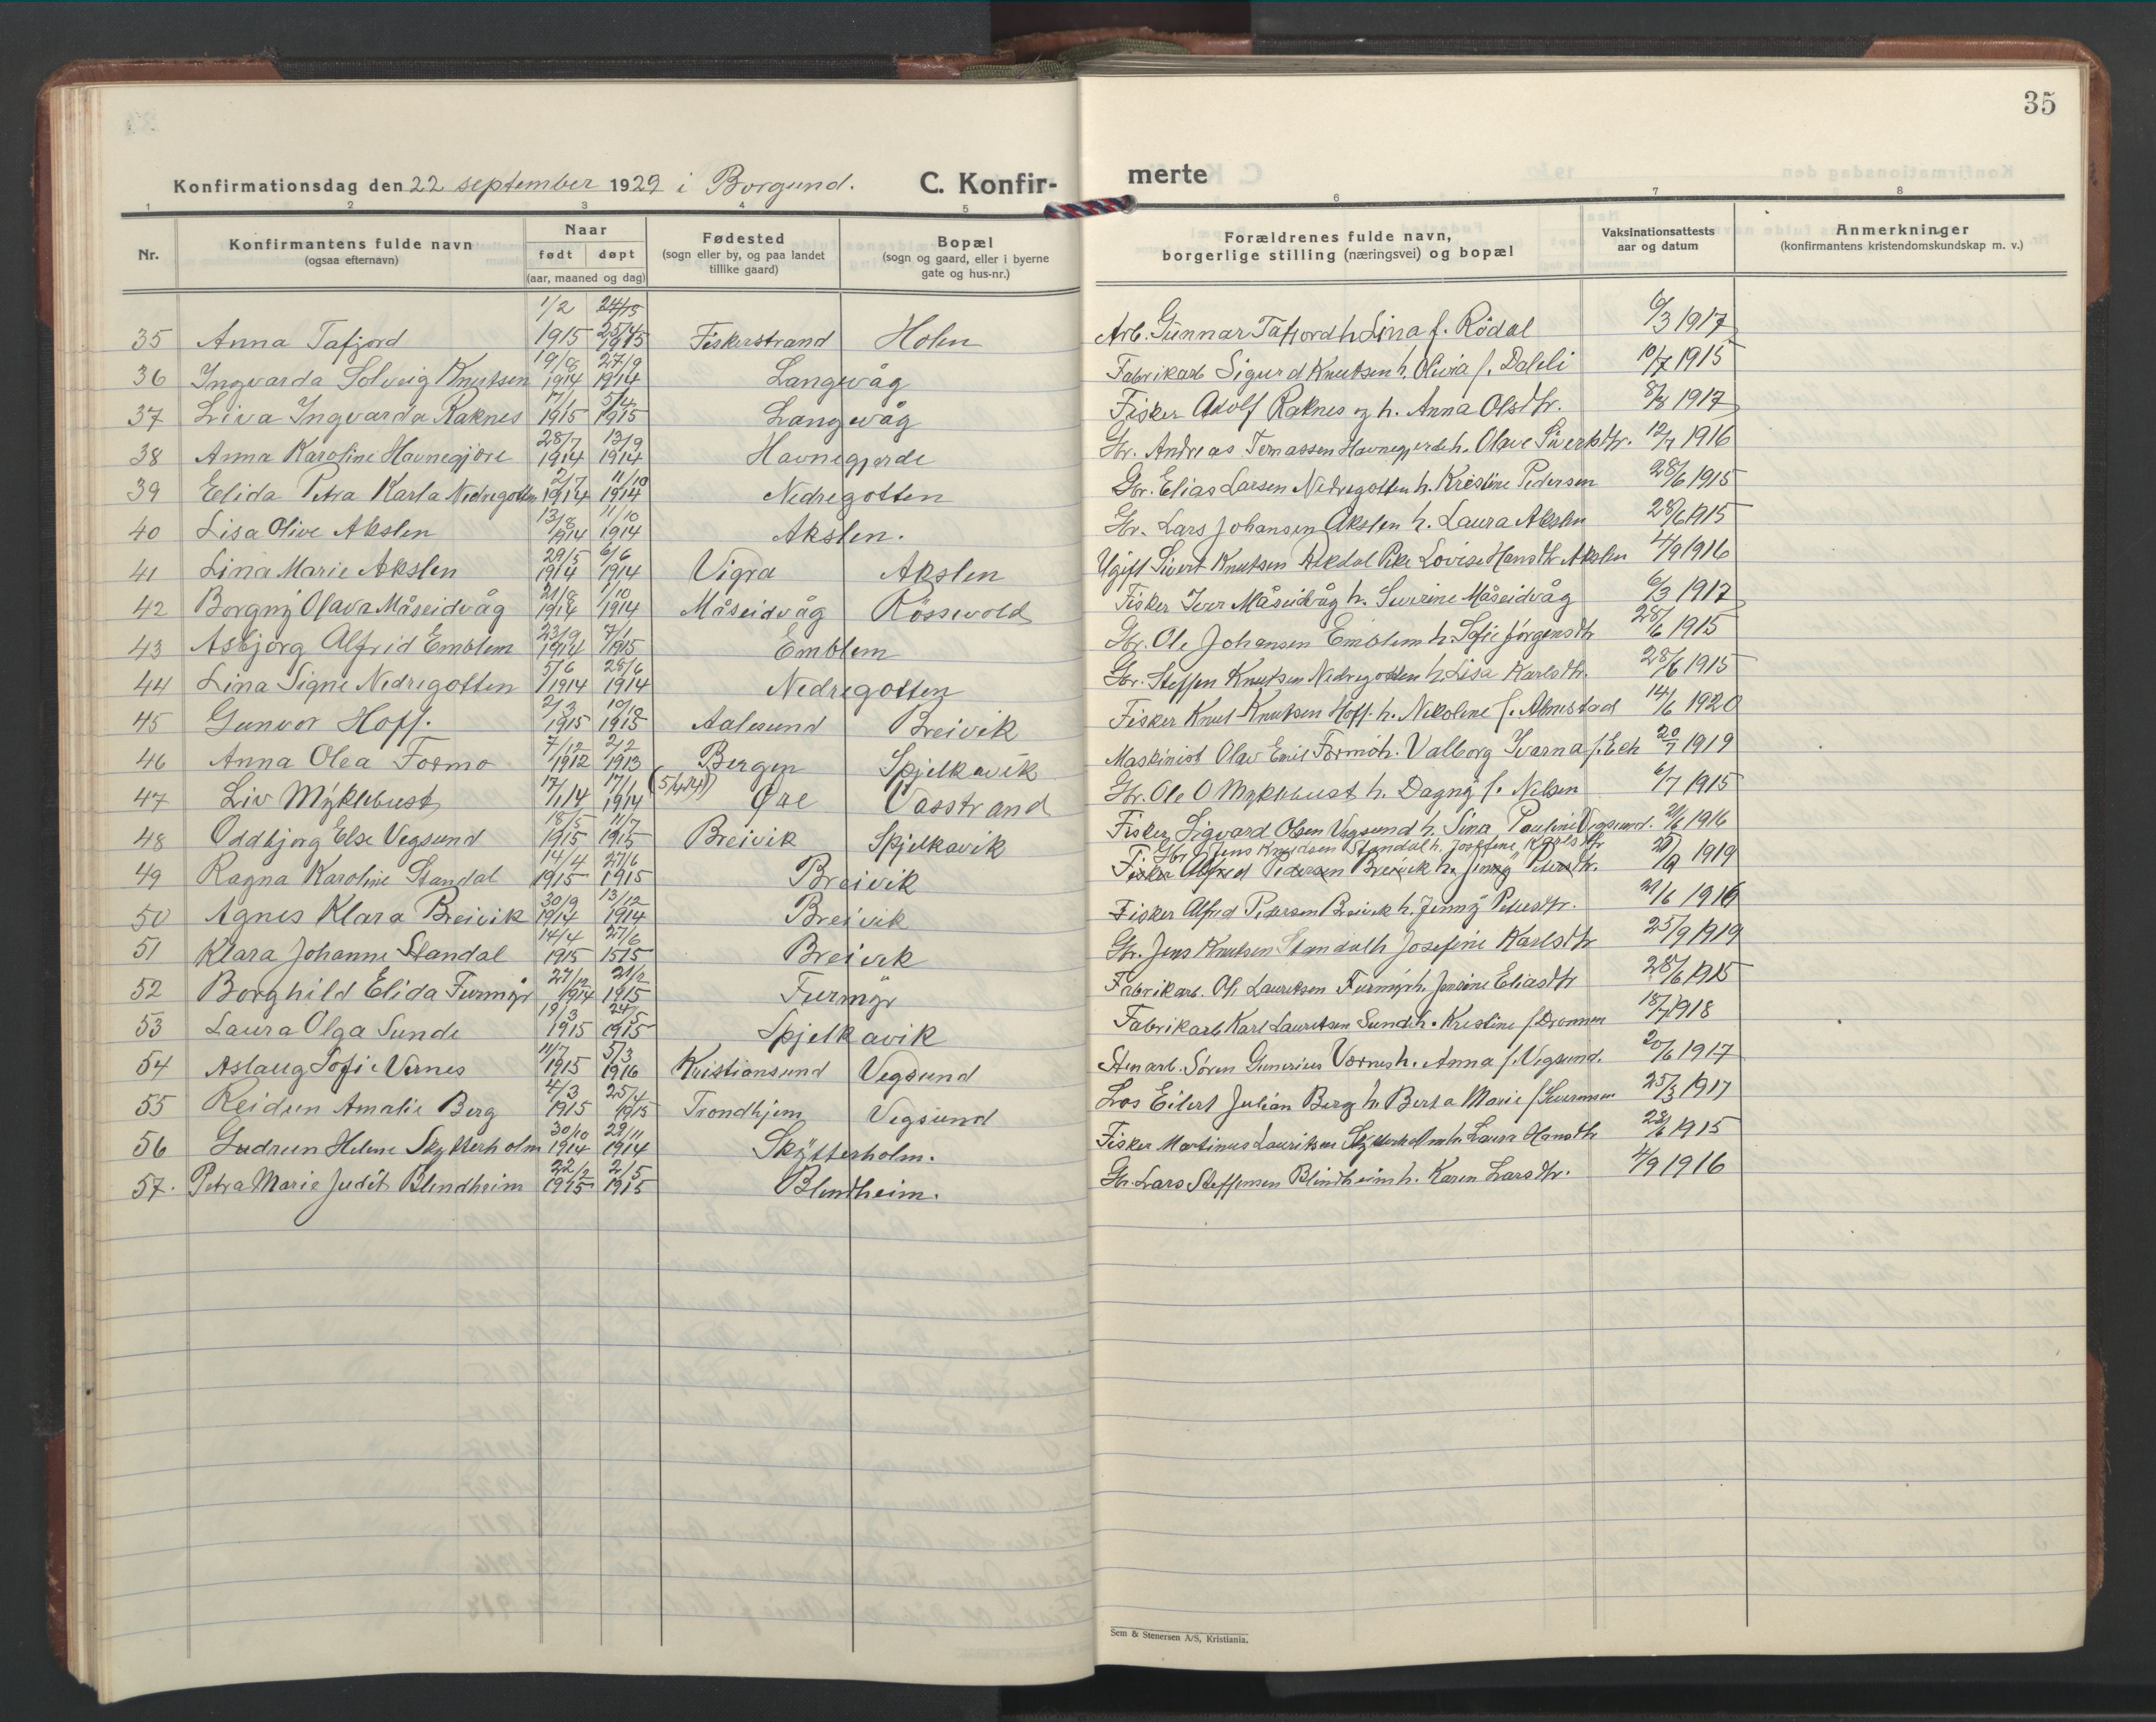 35
Konfirmationsdag den 22 september 1929 i Borgund. C. Konfir- merte
1 2 3 4 5 6 7 8
Nr. Konfirmantens fulde navn (ogsaa efternavn) Naar født døpt (aar, maaned og dag) Fødested (sogn eller by, og paa landet tillike gaard) Bopæl (sogn og gaard, eller i byerne gate og hus-nr.) Forældrenes fulde navn, borgerlige stilling (næringsvei) og bopæl Vaksinationsattests aar og datum Anmerkninger (konfirmantens kristendomskundskap m. v.)
35 Anna Tafjord 1/2 1915 25/4 1915 Fiskerstrand Holen Arb. Gunnar Tafjord h. Lina f. Rödal 6/3 1917
36 Ingvarda Solveig Knutsen 19/8 1914 27/9 1914 Langevåg Fabrikarb Sigurd Knutsen h. Olivia f. Daleli 10/7 1915
37 Liva Ingvarda Raknes 1915 5/4 1915 Langevåg Fisker Adolf Raknes og h. Anna Olsdtr. 8/8 1917
38 Anna Karoline Havnegjöre 28/7 1914 13/9 1914 Havnegjerde Gbr. Andreas Tomassen Havnegjerde h. Olave Siverbdtr. 12/7 1916
39 Elida Petra Karla Nedregotten 2/7 1914 11/10 1914 Nedregotten Gbr. Elias Larsen Nedregotten h. Kristine Pedersen 28/6 1915
40 Lisa Olive Akslen 13/8 1914 11/10 1914 Akslen. Gbr. Lars Johansen Akslen h. Laura Akslen 28/6 1915
41 Lina Marie Akslen 29/5 1914 6/6 1914 Vigra Akslen Ugift Sivert Knutsen Alkdal Pike Lovise Hansdtr Akslen 4/9 1916
42 Borgny Olava Måseidvåg 21/8 1914 1/10 1914 Måseidvåg Rössevold Fisker Iver Måseidvåg h. Severine Måseidvåg 6/3 1917
43 Asbjörg Alfrid Emblem 23/9 1914 7/1 1915 Emblem Gbr. Ole Johansen Emblem h. Sofie Jörgensdtr 28/6 1915
44 Lina Signe Nedregotten 5/6 1914 28/6 1914 Nedregotten Gbr. Steffen Knutsen Nedregotten h. Lisa Karlsdtr. 28/6 1915
45 Gunvor Hoff. 2/3 1915 10/10 1915 Aalesund Breivik Fisker Knut Knutsen Hoff. h. Nikoline f. Almestad 14/6 1920
46 Anna Olea Formo 7/12 1912 2/2 1913 Bergen Spjelkavik Maskinist Olav Emil Formo h. Valborg Ivarna f. Eek 20/7 1919
47 Liv Myklebust 17/1 14 17/1 1914 Øre Vasstrand Gbr. Ole O Myklebust h. Dagny f. Nilsen 6/7 1915
48 Oddbjörg Else Vegsund 18/5 1915 11/7 1915 Breivik Spjelkavik Fisker Sigvard Olsen Vegsund h. Sina Pauline Vegsund. 21/6 1916
49 Ragna Karoline Standal 14/4 1915 27/6 1915 Breivik Gbr. Jens Knudsen Standal h. Josefine Karlsdtr 25/9 1919
Fisker Alfred Pedersen Breivik h. Jenny Petersdtr.
50 Agnes Klara Breivik 30/9 1914 13/12 1914 Breivik Fisker Alfred Pedersen Breivik h. Jenny Petersdtr. 21/6 1916
51 Klara Johanne Standal 14/4 1915 27/6 1515 Breivik Gbr. Jens Knutsen Standal h Josefine Karlsdtr 25/9 1919
52 Borghild Elida Furmyr 27/12 1914 21/2 1915 Furmyr Fabrikarb. Ole Lauritsen Furmyr h. Jensine Eliasdtr 28/6 1915
53 Laura Olga Sunde 19/3 1915 24/5 1915 Spjelkavik Fabrikarb Karl Lauritsen Sunde h. Kristine f. Dronnen 18/7 1918
54 Aslaug Sofie Vernes 11/7 1915 5/3 1916 Kristiansund Vegsund Stenarb. Sören Gunerius Vornes h. Anna f. Vegsund. 20/6 1917
55 Reidun Amalie Berg 4/3 1915 25/4 1915 Trondhjem Vegsund Los Eilert Julian Berg h. Berta Marie f. 25/3 1917
56 Gudrun Helene Skytterholm 30/10 1914 29/11 1914 Skytterholm. Fisker Martinus Lauritsen Skytterholm h. Laura Hansdtr 28/6 1915
57. Petra Marie Judit Blindheim 22/2 1915 2/5 1915 Blindheim. Gbr. Lars Steffensen Blindheim h. Karen Larsdtr. 4/9 1916
Sem & Stenersen A/S, Kristiania.